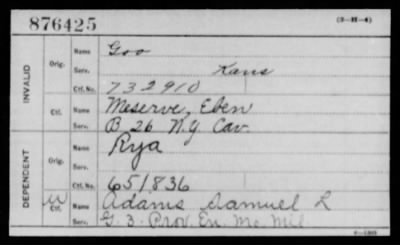 876425 (3-H-4)
INVALID
Orig. Name Goo
Serv. Kans
Ctf. No. 732910
Ctf. Name Meserve, Eben
Serv. B 26 N.Y. Cav.
DEPENDENT
Orig. Name Rya
Serv.
Ctf. No. 651836
Ctf. Name Adams Samuel L
Serv. G. 3. Prov. En. Mo. Mil